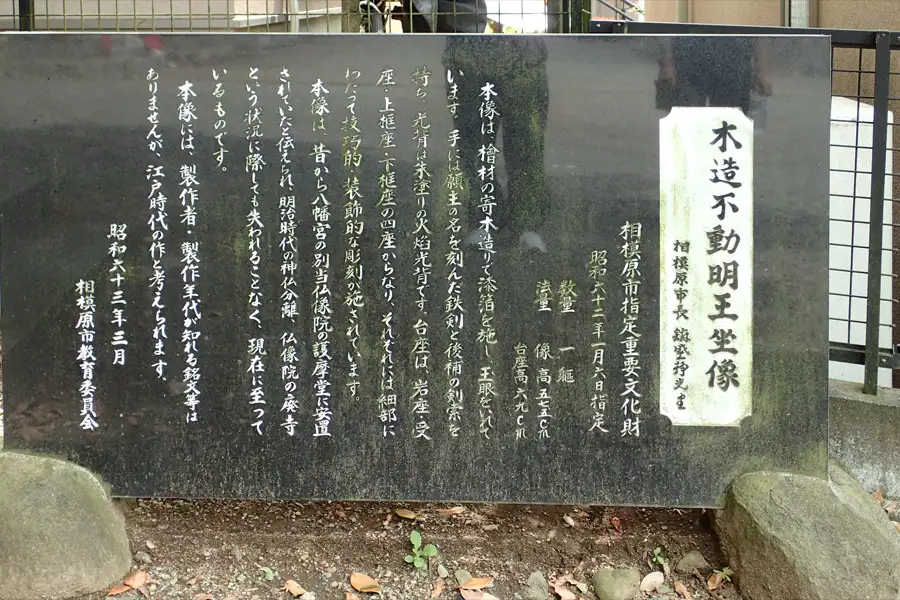 木造不動明王坐像
相模原市長
相模原市指定重要文化財
昭和六十二年一月六日指定
数量 一軀
法量 像高五七五cm
台座高六九cm
本像は、檜材の寄木造りで漆箔を施し、玉眼をいれて
います。手には願主の名を刻んだ鉄剣と後補の剣索を
持ち、光背は朱塗りの火焰光背です。台座は、岩座・受
座・上框座・下框座の四座からなり、それぞれには細部に
わたって技巧的・装飾的な彫刻が施されています。
本像は、昔から八幡宮の別当仏像院の護摩堂に安置
されていたと伝えられ、明治時代の神仏分離、仏像院の廃寺
という状況に際しても失われることなく、現在に至って
いるものです。
本像には、製作者・製作年代が知れる銘文等は
ありませんが、江戸時代の作と考えられます。
昭和六十三年三月
相模原市教育委員会